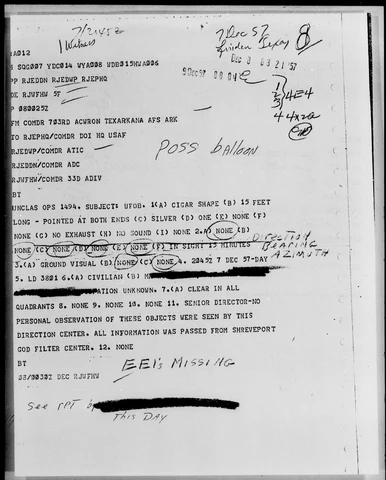 7/2145Z
1 Witness
7 Dec 57
Linden Texas
8
Dec 8 03 21 '57
9 Dec 57 00 04
WA012
S SQG007 YDC014 WYA008 WDB015HWA006
PP RJEDDN RJEDWP RJEPHQ
DE RJWFHW 57
P 080025Z
FM COMDR 703RD ACWRON TEXARKANA AFS ARK
TO RJEPHQ/COMDR DOI HQ USAF
RJEDWP/COMDR ATIC
RJEDDN/COMDR ADC
RJWFHW/COMDR 33D ADIV
BT
1
2
3
4E4
4 4X2
POSS balloon
UNCLAS OPS 1494. SUBJECT: UFOB. 1(A) CIGAR SHAPE (B) 15 FEET
LONG - POINTED AT BOTH ENDS (C) SILVER (D) ONE (E) NONE (F)
NONE (G) NONE (H) NO EXHAUST (I) NO SOUND (I) NONE 2.(A) NONE (B)
NONE (C) NONE (D) NONE (E) NONE (F) IN SIGHT 15 MINUTES
DIRECTION
BEARING
AZIMUTH
3.(A) GROUND VISUAL (B) NONE (C) NONE 4. 2045Z 7 DEC 57-DAY
5. LD 3821 6.(A) CIVILIAN (B)
UNKNOWN. 7.(A) CLEAR IN ALL
QUADRANTS 8. NONE 9. NONE 10. NONE 11. SENIOR DIRECTOR-NO
PERSONAL OBSERVATION OF THESE OBJECTS WERE SEEN BY THIS
DIRECTION CENTER. ALL INFORMATION WAS PASSED FROM SHREVEPORT
GOD FILTER CENTER. 12. NONE
BT
08/0030Z DEC RJWFHW
EEI's MISSING
See rpt by
This DAY